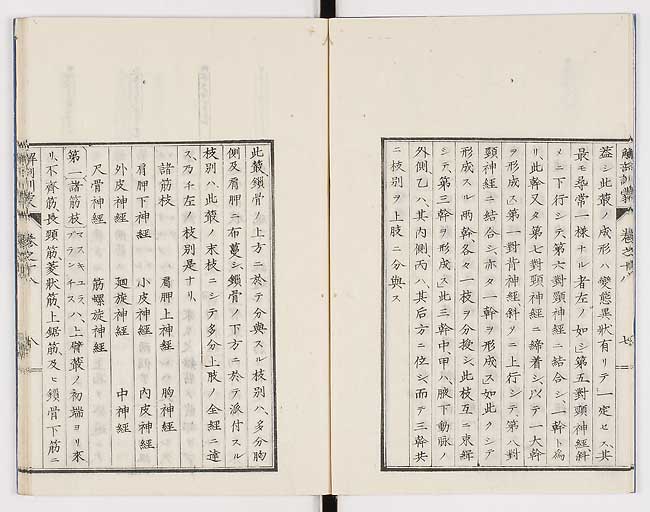 蓋シ此叢ノ成形ハ變態異狀有リテ一定セス、其
最モ尋常一樣ナル者左ノ如シ第五對頸神經斜
メニ下行シテ、第六對頸神經ニ結合シ、一幹ト為
リ、此幹又タ第七對頸神經ニ締着シ、以テ一大幹
ヲ形成ス第一對背神經斜ヲニ上行シテ第八對
頸神經ニ結合シ、亦タ一幹ヲ形成ス如此クシテ
形成スル兩幹、各々一枝ヲ分授シ、此枝互ニ
シテ、第三幹ヲ形成ス此三幹中、甲ハ、腋下動脈ノ
外側、乙ハ、其内側、丙ハ、其后方ニ位シ、而テ三幹共
ニ枝別ヲ上肢ニ分與ス
解剖訓蒙
卷之十八
七
此叢、鎖骨ノ上方ニ於テ分與スル枝別ハ、多分胸
側及肩胛ニ布蔓シ、鎖骨ノ下方ニ於テ派付スル
枝別ハ、此叢ノ末枝ニシテ多分上肢ノ全經ニ達
ス、乃チ左ノ枝別是ナリ、
諸筋枝　肩胛上神經　胸神經
肩胛下神經　小皮神經　內皮神經
外皮神經　廻旋神經　中神經
尺骨神經　筋螺旋神經
第一諸筋枝マスキュラ、ブランチスハ、上臂叢ノ初端ヨリ來
リ、不齊筋、長頸筋、菱狀筋、上鋸筋、及ヒ鎖骨下筋ニ
解剖訓蒙
卷之十八
八